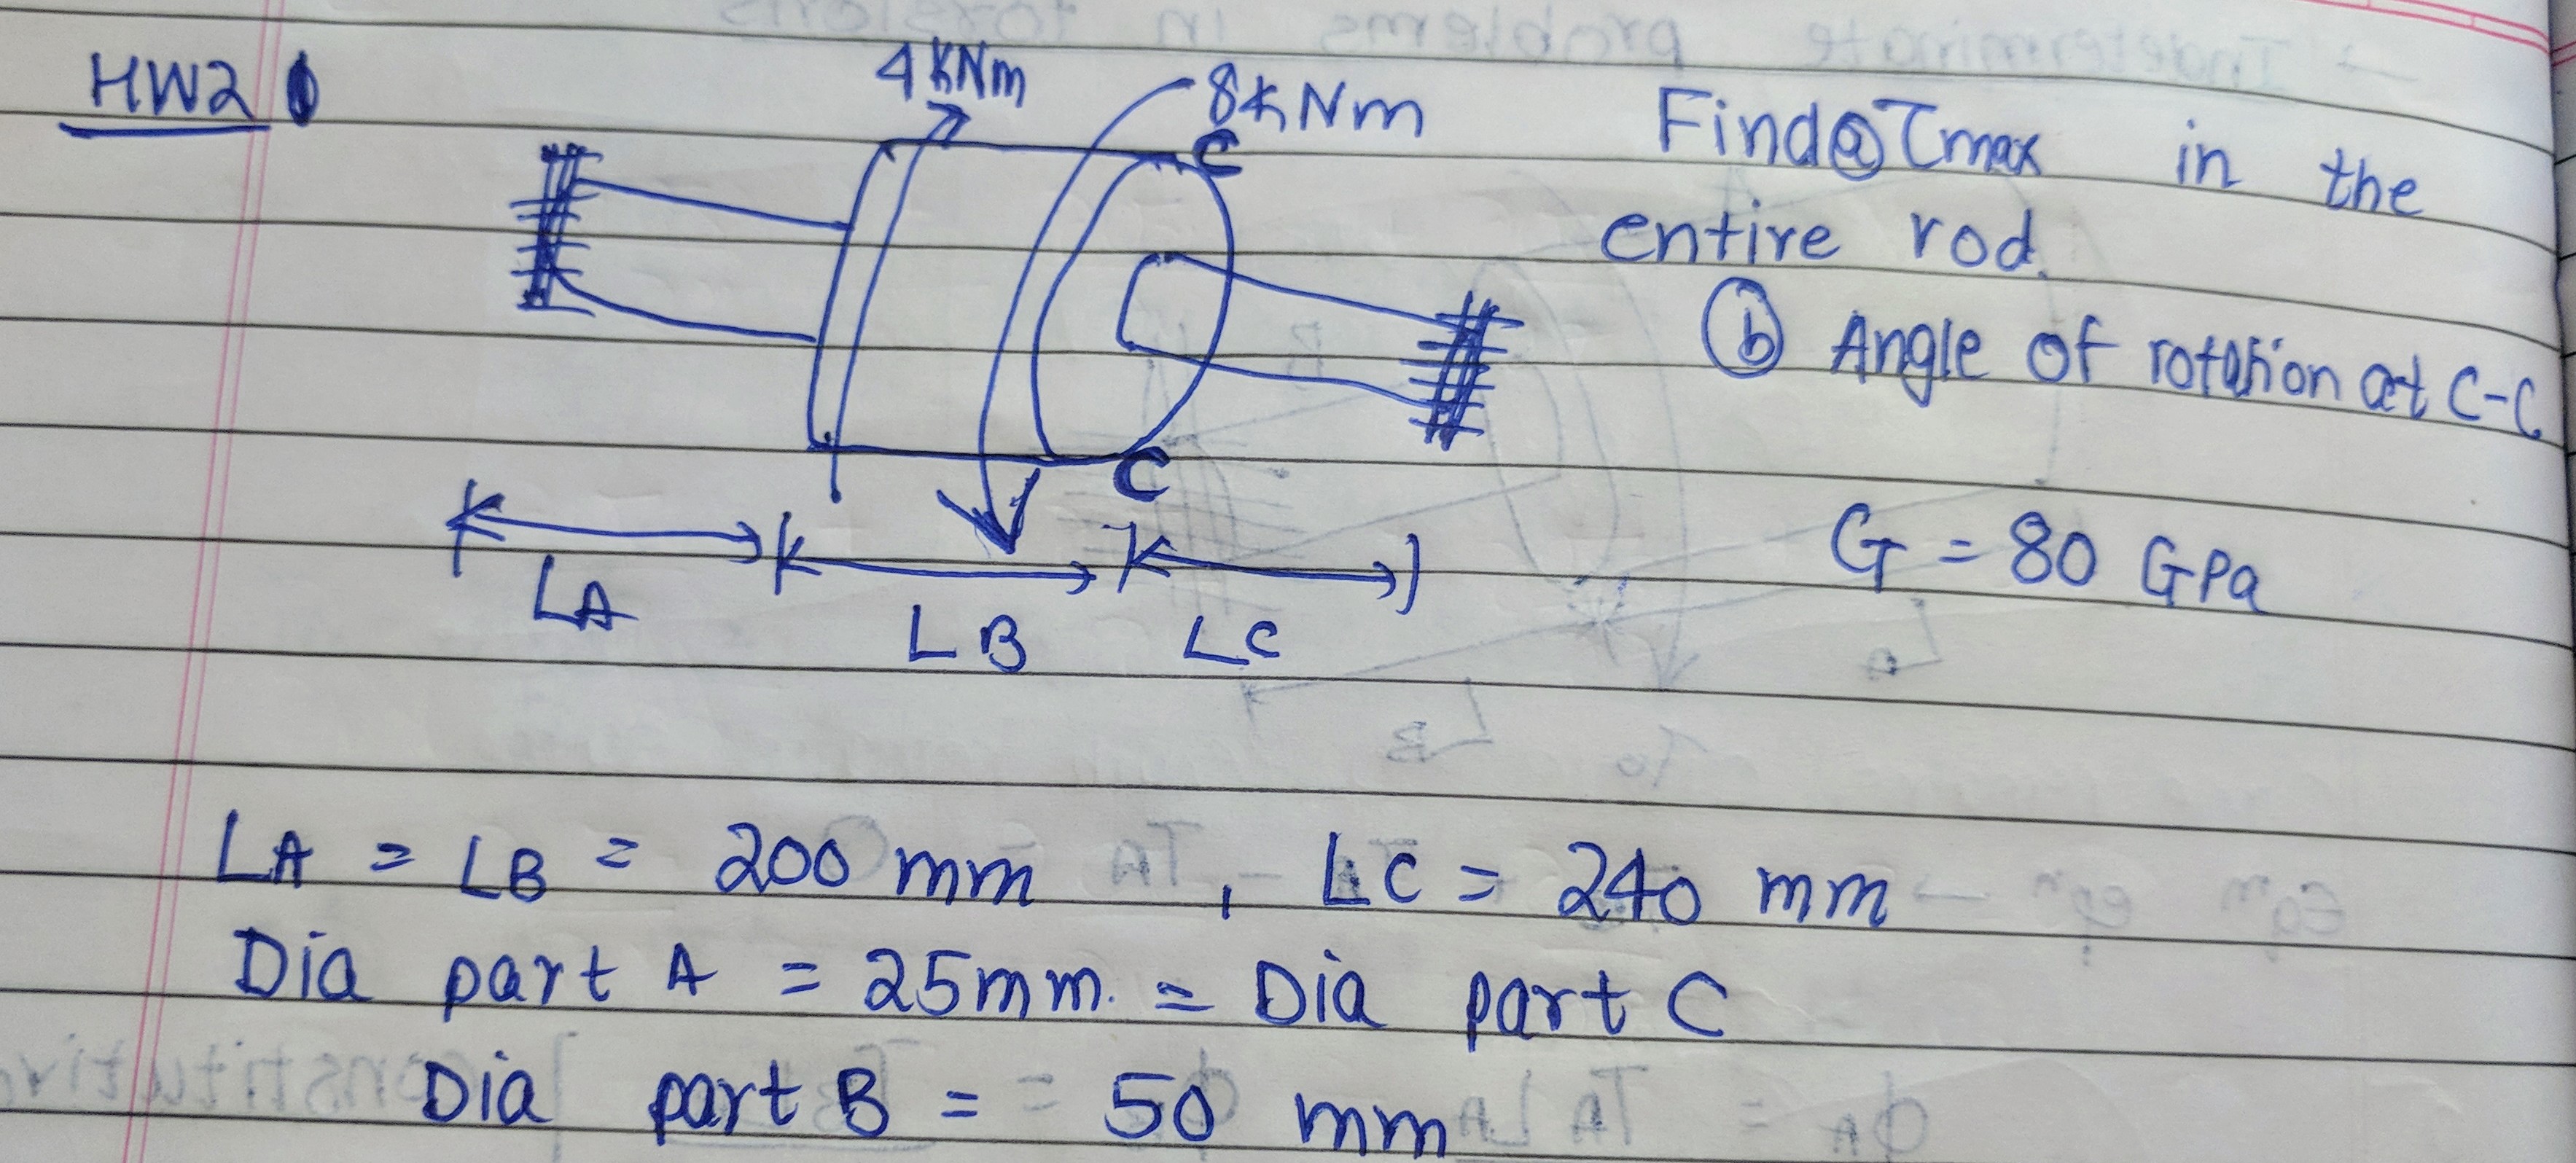 HW2
4 KNm
8 KNm
C
Find ⓐ τmax in the
entire rod.
ⓑ Angle of rotation at C-C
C
G = 80 GPa
LA
LB
LC
LA = LB = 200 mm, LC = 240 mm
Dia part A = 25mm. = Dia part C
Dia part B = 50 mm